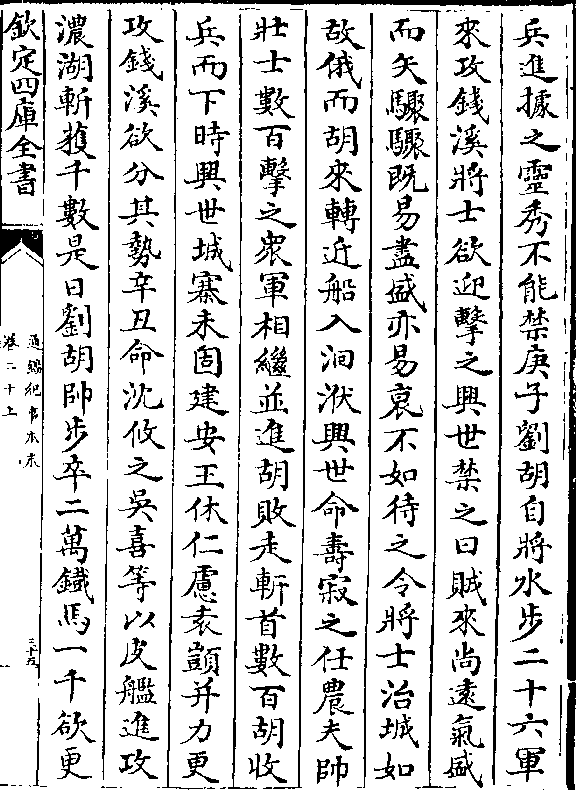 兵進據之靈秀不能禁庚子劉胡自將水步二十六軍
來攻錢溪將士欲迎擊之興世禁之曰賊來尚遠氣盛
而矢驟驟既易盡盛亦易衰不如待之令將士治城如
故俄而胡來轉近船入洄洑興世命夀寂之任農夫帥
壯士數百擊之衆軍相繼並進胡敗走斬首數百胡收
兵而下時興世城寨未固建安王休仁慮袁顗并力更
攻錢溪欲分其勢辛丑命沈攸之吳喜等以皮艦進攻
濃湖斬獲千數是日劉胡帥步卒二萬鐡馬一千欲更
欽定四庫全書
通鑑紀事本末
卷二十上
三十五